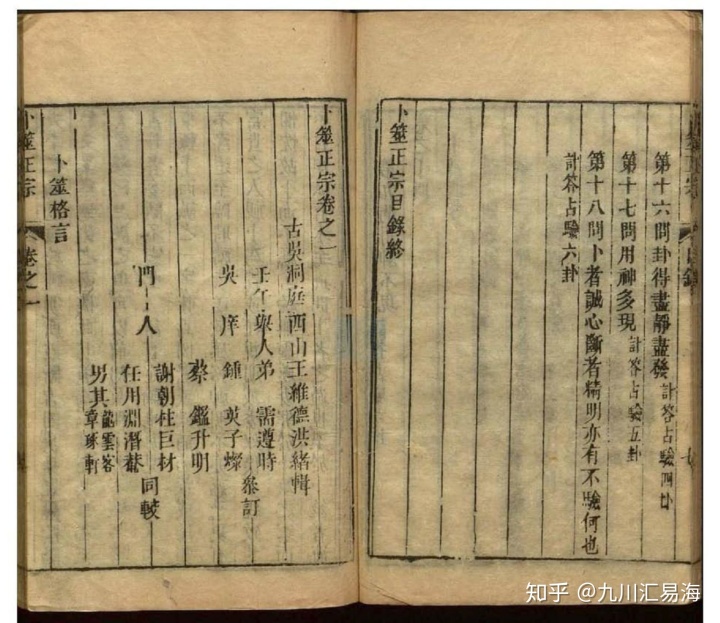 第十六問卦得盡靜盡發 計答占驗四卦
第十七問用神多現 計答占驗五卦
第十八問卜者誠心斷者精明亦有不驗何也
計答占驗六卦
卜筮正宗目錄終
卜筮正宗卷之一
古吳洞庭西山王維德洪緒輯
壬午舉人弟 需遵時
參訂
吳庠 鍾 英子燦
蔡 鑑升明
門人
謝朝柱巨材
任用淵潛菴 同較
男其 龍雲客
章琢軒
卜筮格言
卜筮正宗 卷之一
知乎 @九川汇易海